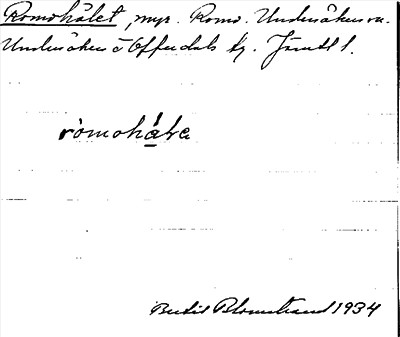 Romohålet, myr. Romo. Undersåkers sn.
Undersåkers o Offerdals tg. Jämtl l.
ròmohåla
Bertil Blomstrand 1934